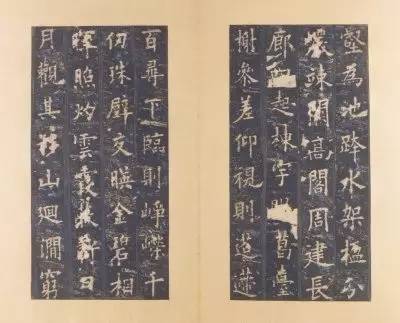 壑為池跨水架楹分
巖竦闕高閣周建長
廊四起棟宇葛臺
榭參差仰視則迢遞
百尋下臨則崢嶸千
仞珠璧交暎金碧相
暉照灼雲霞蔽虧日
月觀其移山迴澗窮